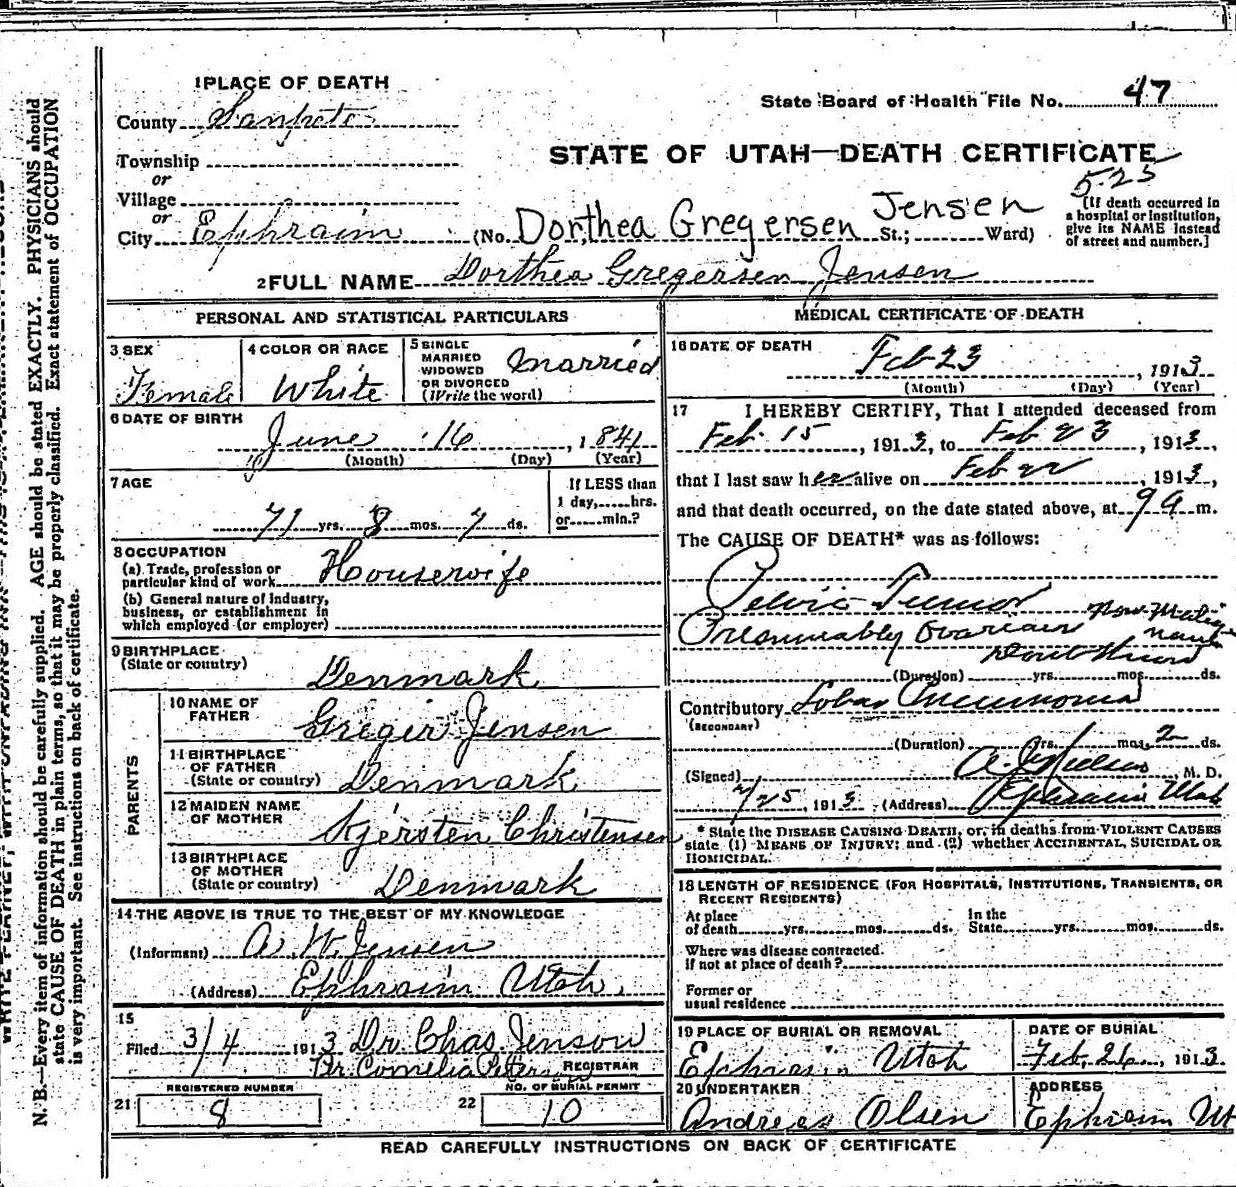 1 PLACE OF DEATH
County Sanpete
State Board of Health File No. 47
STATE OF UTAH—DEATH CERTIFICATE
Township
or
Village
or
City Ephraim (No. Dorthea Gregersen Jensen St.; Ward)
525
[If death occurred in
a hospital or institution,
give its NAME instead
of street and number.]
2 FULL NAME Dorthea Gregersen Jensen
PERSONAL AND STATISTICAL PARTICULARS
3 SEX
Female
4 COLOR OR RACE
White
5 SINGLE
MARRIED
WIDOWED
OR DIVORCED
(Write the word)
Married
6 DATE OF BIRTH
June 16, 1841
(Month) (Day) (Year)
7 AGE
71 yrs. 8 mos. 7 ds.
If LESS than
1 day, hrs.
or min.?
8 OCCUPATION
(a) Trade, profession or
particular kind of work Housewife
(b) General nature of industry,
business, or establishment in
which employed (or employer)
9 BIRTHPLACE
(State or country)
Denmark
PARENTS
10 NAME OF
FATHER
Greger Jensen
11 BIRTHPLACE
OF FATHER
(State or country)
Denmark
12 MAIDEN NAME
OF MOTHER
Kjersten Christensen
13 BIRTHPLACE
OF MOTHER
(State or country)
Denmark
14 THE ABOVE IS TRUE TO THE BEST OF MY KNOWLEDGE
(Informant) A. W. Jensen
(Address) Ephraim Utah.
15
Filed 3/4 1913 Dr. Chas Jenson
Br. Cornelia Peterson REGISTRAR
REGISTERED NUMBER
21 8
NO. OF BURIAL PERMIT
22 10
MEDICAL CERTIFICATE OF DEATH
16 DATE OF DEATH
Feb 23, 1913
(Month) (Day) (Year)
17 I HEREBY CERTIFY, That I attended deceased from
Feb. 15, 1913, to Feb 23, 1913,
that I last saw her alive on Feb 22, 1913,
and that death occurred, on the date stated above, at 9 A m.
The CAUSE OF DEATH* was as follows:
Pelvic Tumor
Presumably Ovarian Non-Malig
nant
Dont Know
(Duration) yrs. mos. ds.
Contributory Lobar Pneumonia
(SECONDARY)
(Duration) yrs. mos. 2 ds.
(Signed) M. D.
2/25, 1913 (Address) Ephraim Utah
* State the DISEASE CAUSING DEATH, or, in deaths from VIOLENT CAUSES
state (1) MEANS OF INJURY; and (2) whether ACCIDENTAL, SUICIDAL OR
HOMICIDAL.
18 LENGTH OF RESIDENCE (FOR HOSPITALS, INSTITUTIONS, TRANSIENTS, OR
RECENT RESIDENTS)
At place
of death yrs. mos. ds.
In the
State yrs. mos. ds.
Where was disease contracted.
if not at place of death?
Former or
usual residence
19 PLACE OF BURIAL OR REMOVAL
Ephraim Utah
DATE OF BURIAL
Feb. 26, 1913
20 UNDERTAKER
Andreas Olsen
ADDRESS
Ephraim Ut
READ CAREFULLY INSTRUCTIONS ON BACK OF CERTIFICATE
N. B.—Every item of information should be carefully supplied. AGE should be stated EXACTLY. PHYSICIANS should
state CAUSE OF DEATH in plain terms, so that it may be properly classified. Exact statement of OCCUPATION
is very important. See instructions on back of certificate.